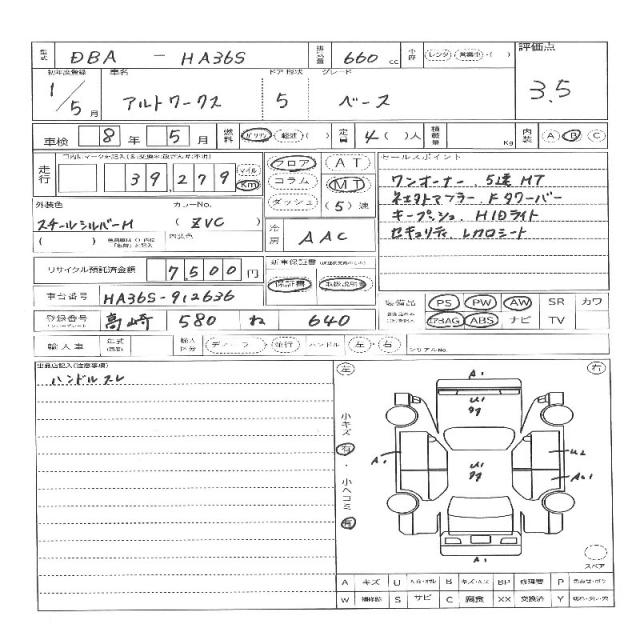 型式 DBA - HA36S 排気量 660 cc 車歴 レンタ・営業車・( ) 評価点
3.5
初年度登録 車名 ドア 形状 グレード
1/5月 アルトワークス 5 ベース
車検 8年 5月 燃料 ガソリン 軽油 ( ) 定員 4( )人 積載量 Kg 内装 A B C
走行 39,279 マイル Km
フロア AT
コラム MT
ダッシュ (5)速
セールスポイント
ワンオーナー、5速MT
キープッシュ、HIDライト
セキュリティ、レカロシート
外装色 カラーNo.
スチールシルバーM (ZVC)
( ) 内装色
冷房 AAC
リサイクル預託済金額 7500円
新車保証書
保証書 取扱説明書
車台番号 HA36S-912636
装備品 PS PW AW SR カワ
エアBAG ABS ナビ TV
登録番号 高崎 580 ね 640
輸入車 年式 輸入区分 ディーラー・並行 ハンドル 左・右 シリアルNo.
出品店記入(注意事項)
ハンドルスレ
左 右
小キズ 有・小ヘコミ 有
A1
U1
A1
U2
U1
A1
スペア
A キズ U B キズ・ヘコ BP 修理書 P
W 補修跡 S サビ C 腐食 XX 交換済 Y